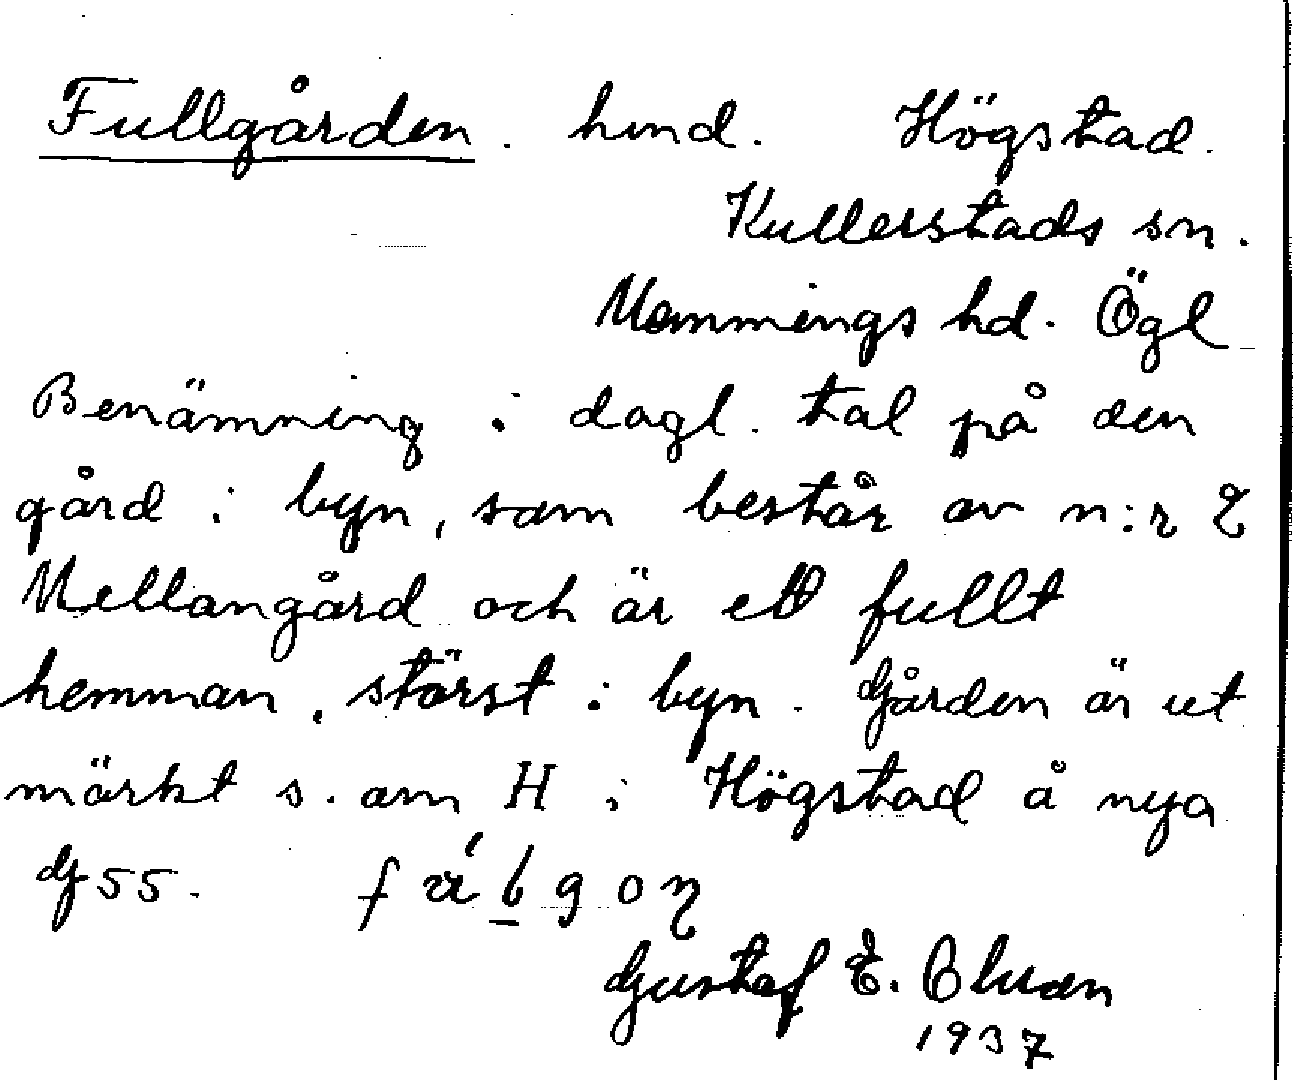 Fullgården. hmd. Högstad.
Kullerstads sn.
Memmings hd. Ögl
Benämning i dagl. tal på den
gård i byn, som består av n:r 2
Mellangård och är ett fullt
hemman, störst i byn. Gården är ut
märkt s. am H i Högstad å nya
Gf 55.
Gustaf E.
1937